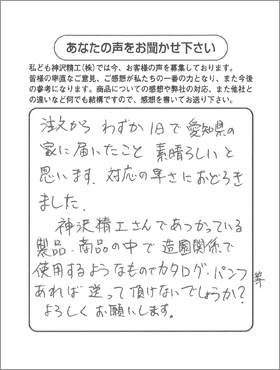 あなたの声をお聞かせ下さい
私ども神沢精工(株)では今、お客様の声を募集しております。
皆様の率直なご意見、ご感想が私たちの一番の力となり、また今後
の参考になります。商品についての感想や弊社の対応、また他社と
の違いなど何でも結構ですので、感想を書いてお送り下さい。
注文から わずか1日で愛知県の
家に届いたこと 素晴らしいと
思います。対応の早さにおどろき
ました。
神沢精工さんであつかっている
製品・商品の中で 造園関係で
使用するようなものでカタログ・パンフ等
あれば 送って頂けないでしょうか?
よろしくお願いします。